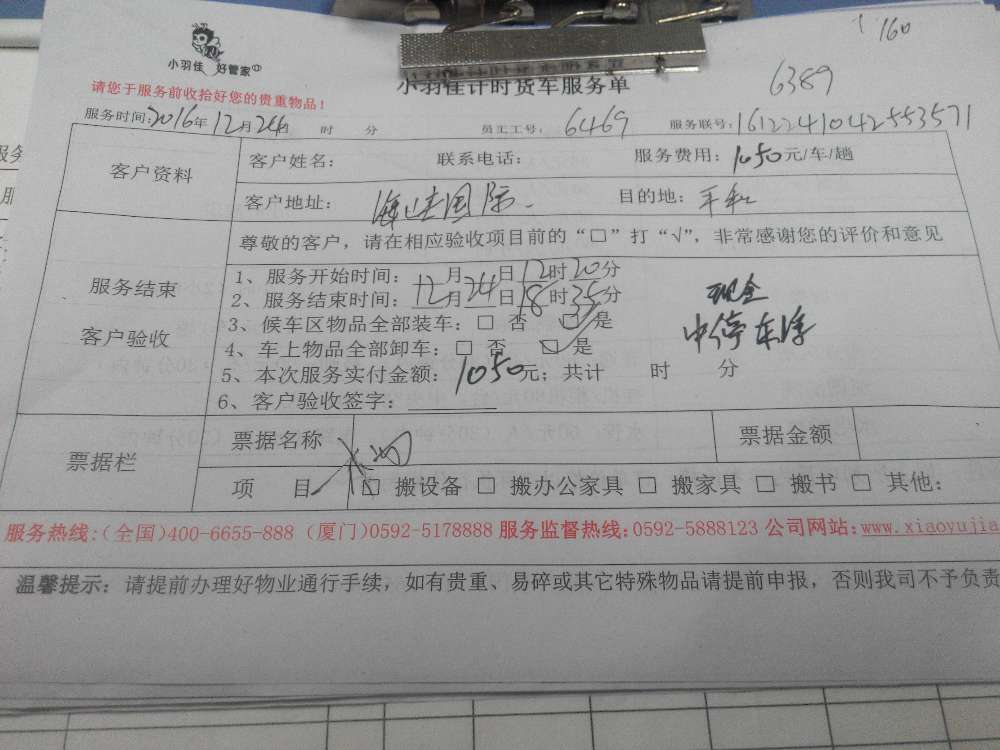 160
小羽佳 好管家
6389
小羽佳计时货车服务单
请您于服务前收拾好您的贵重物品！
服务时间：2016年12月24日 时 分 员工工号： 6469 服务联号：1612241042553571
客户资料
客户姓名： 联系电话： 服务费用：1050元/车/趟
客户地址： 国际 目的地：
尊敬的客户，请在相应验收项目前的“口”打“√”，非常感谢您的评价和意见
服务结束
客户验收
1、服务开始时间：12月24日12时20分
2、服务结束时间：12月24日18时35分
3、候车区物品全部装车：□ 否 □ 是
4、车上物品全部卸车：□ 否 □ 是
5、本次服务实付金额：1050元；共计 时 分
6、客户验收签字：
现金
中停车
票据栏
票据名称
票据金额
项 目
□ 搬设备 □ 搬办公家具 □ 搬家具 □ 搬书 □ 其他：
服务热线：（全国）400-6655-888（厦门）0592-5178888 服务监督热线：0592-5888123 公司网站：www.xiaoyujia
温馨提示：请提前办理好物业通行手续，如有贵重、易碎或其它特殊物品请提前申报，否则我司不予负责